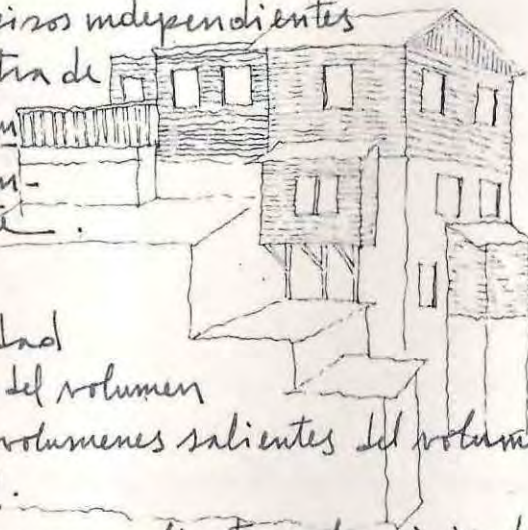 pisos independientes
tra de
dad
del volumen
volumenes salientes del volum